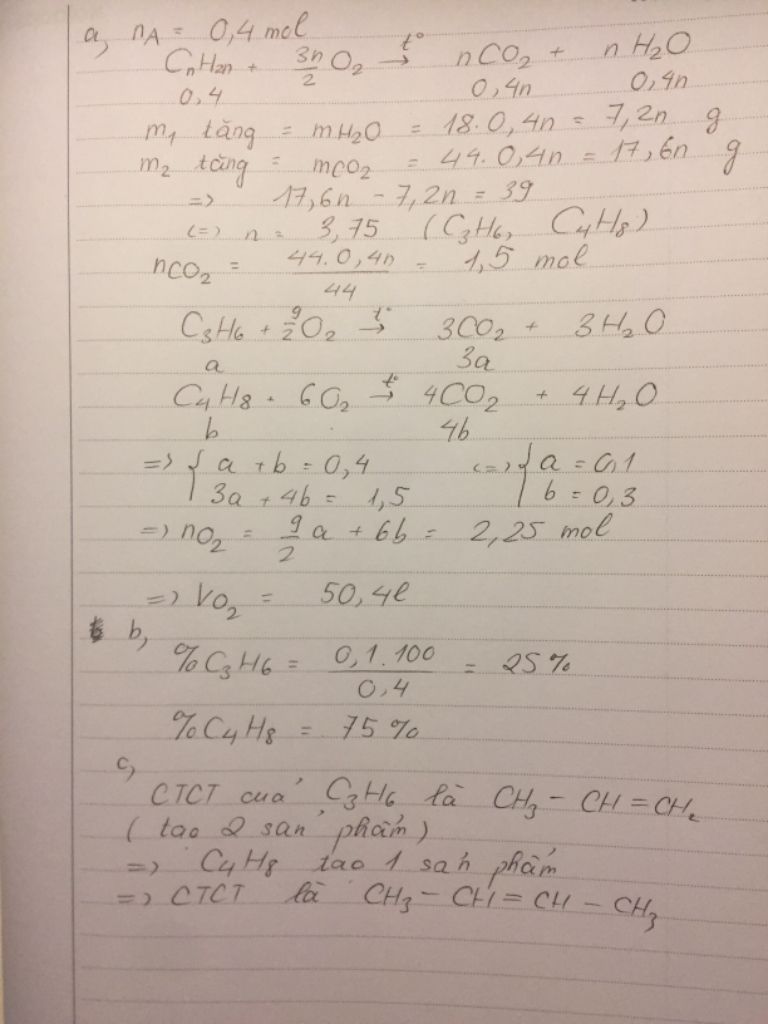 a, nA = 0,4 mol
CnH2n + 3n/2 O2 t°→ nCO2 + nH2O
0,4 0,4n 0,4n
m1 tăng = mH2O = 18.0,4n = 7,2n g
m2 tăng = mCO2 = 44.0,4n = 17,6n g
=> 17,6n - 7,2n = 39
(=) n = 3,75 (C3H6, C4H8)
nCO2 = 44.0,4n / 44 = 1,5 mol
C3H6 + 9/2 O2 t°→ 3CO2 + 3H2O
a 3a
C4H8 + 6O2 t°→ 4CO2 + 4H2O
b 4b
=> { a + b = 0,4 (=) { a = 0,1
3a + 4b = 1,5 b = 0,3
=> nO2 = 9/2 a + 6b = 2,25 mol
=> VO2 = 50,4l
b,
%C3H6 = 0,1.100 / 0,4 = 25%
%C4H8 = 75%
c,
CTCT cuả C3H6 là CH3 - CH = CH2
(tạo 2 sản phẩm)
=> C4H8 tạo 1 sản phẩm
=> CTCT là CH3 - CH = CH - CH3